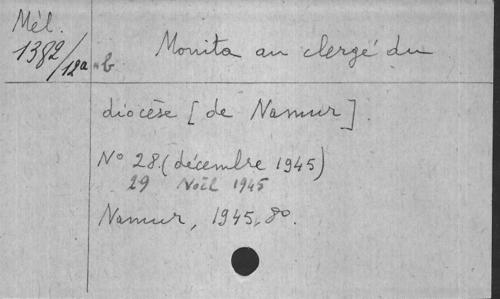 Mél.
1382/12a-b
Monita au clergé du
diocèse [de Namur].
N° 28. (décembre 1945)
29 Noël 1945
Namur, 1945, 8°.